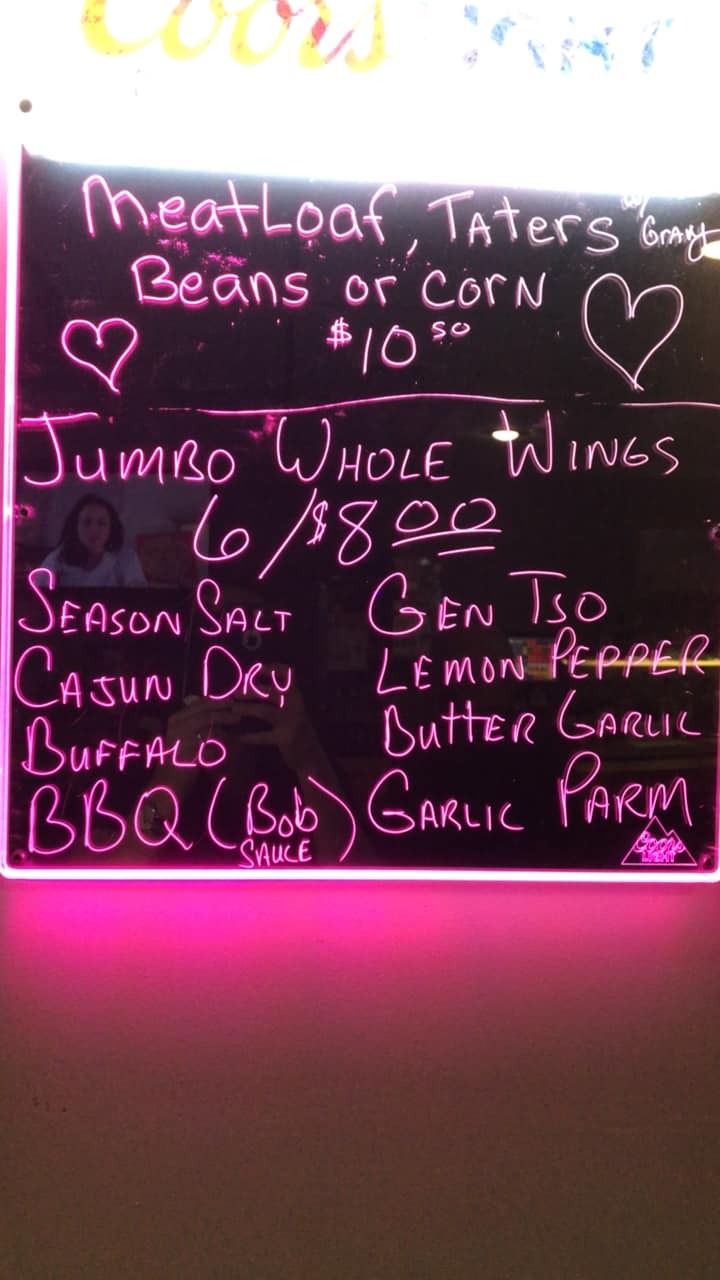 Coors LIGHT
MeatLoaf, TAters w/ GRAVY
Beans or CORN
$10 50
JUMBO WHOLE WINGS
6/$8 00
SEASON SALT GEN TSO
CAJUN DRY LEMON PEPPER
BUFFALO BUttER GARLIC
BBQ (Bob SAUCE) GARLIC PARM
Coors LIGHT